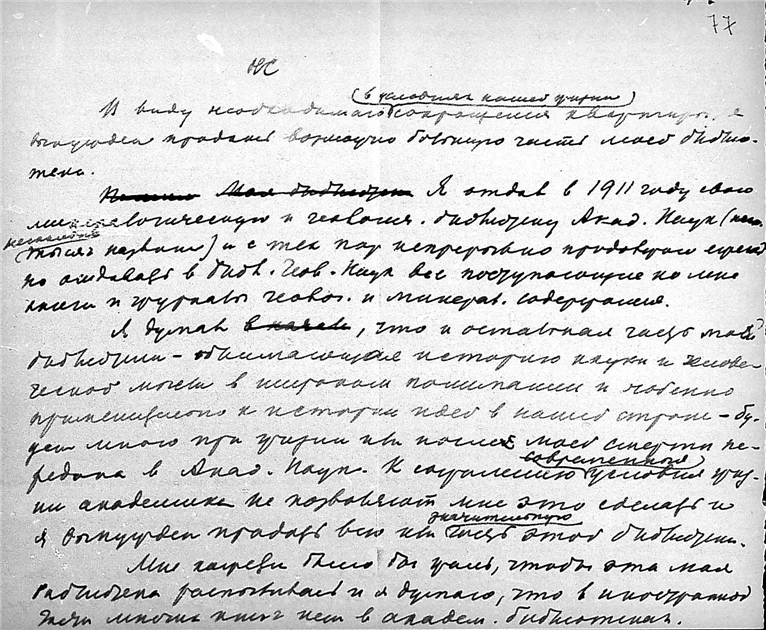 77
НС
(в условиях нашей жизни)
В виду необходимого сокращения квартиры, я
вынужден продать возможно большую часть моей библио-
теки.
Моя библиотека Я отдал в 1911 году свою
минералогическую и геологич. библиотеку Акад. Наук (
несколько
тысяч названий) и с тех пор непрерывно продолжал
отдавать в библ. Геол. Наук все поступающие ко мне
книги и журналы геолог. и минерал. содержания.
Я думал в начале, что и остальная часть моей
библиотеки – обнимающая историю науки и челове-
ческой мысли в широком понимании и особенно
применительно к истории идей в нашей стране – бу-
дет мною при жизни или после моей смерти пе-
редана в Акад. Наук. К сожалению
современной
условия жиз-
ни академика не позволяют мне это сделать и
я вынужден продать всю или
значительную
часть этой библиотеки.
Мне было бы жаль, чтобы эта моя
библиотека распылилась и я думаю, что в иностранной
части многих книг нет в академ. библиотеках.